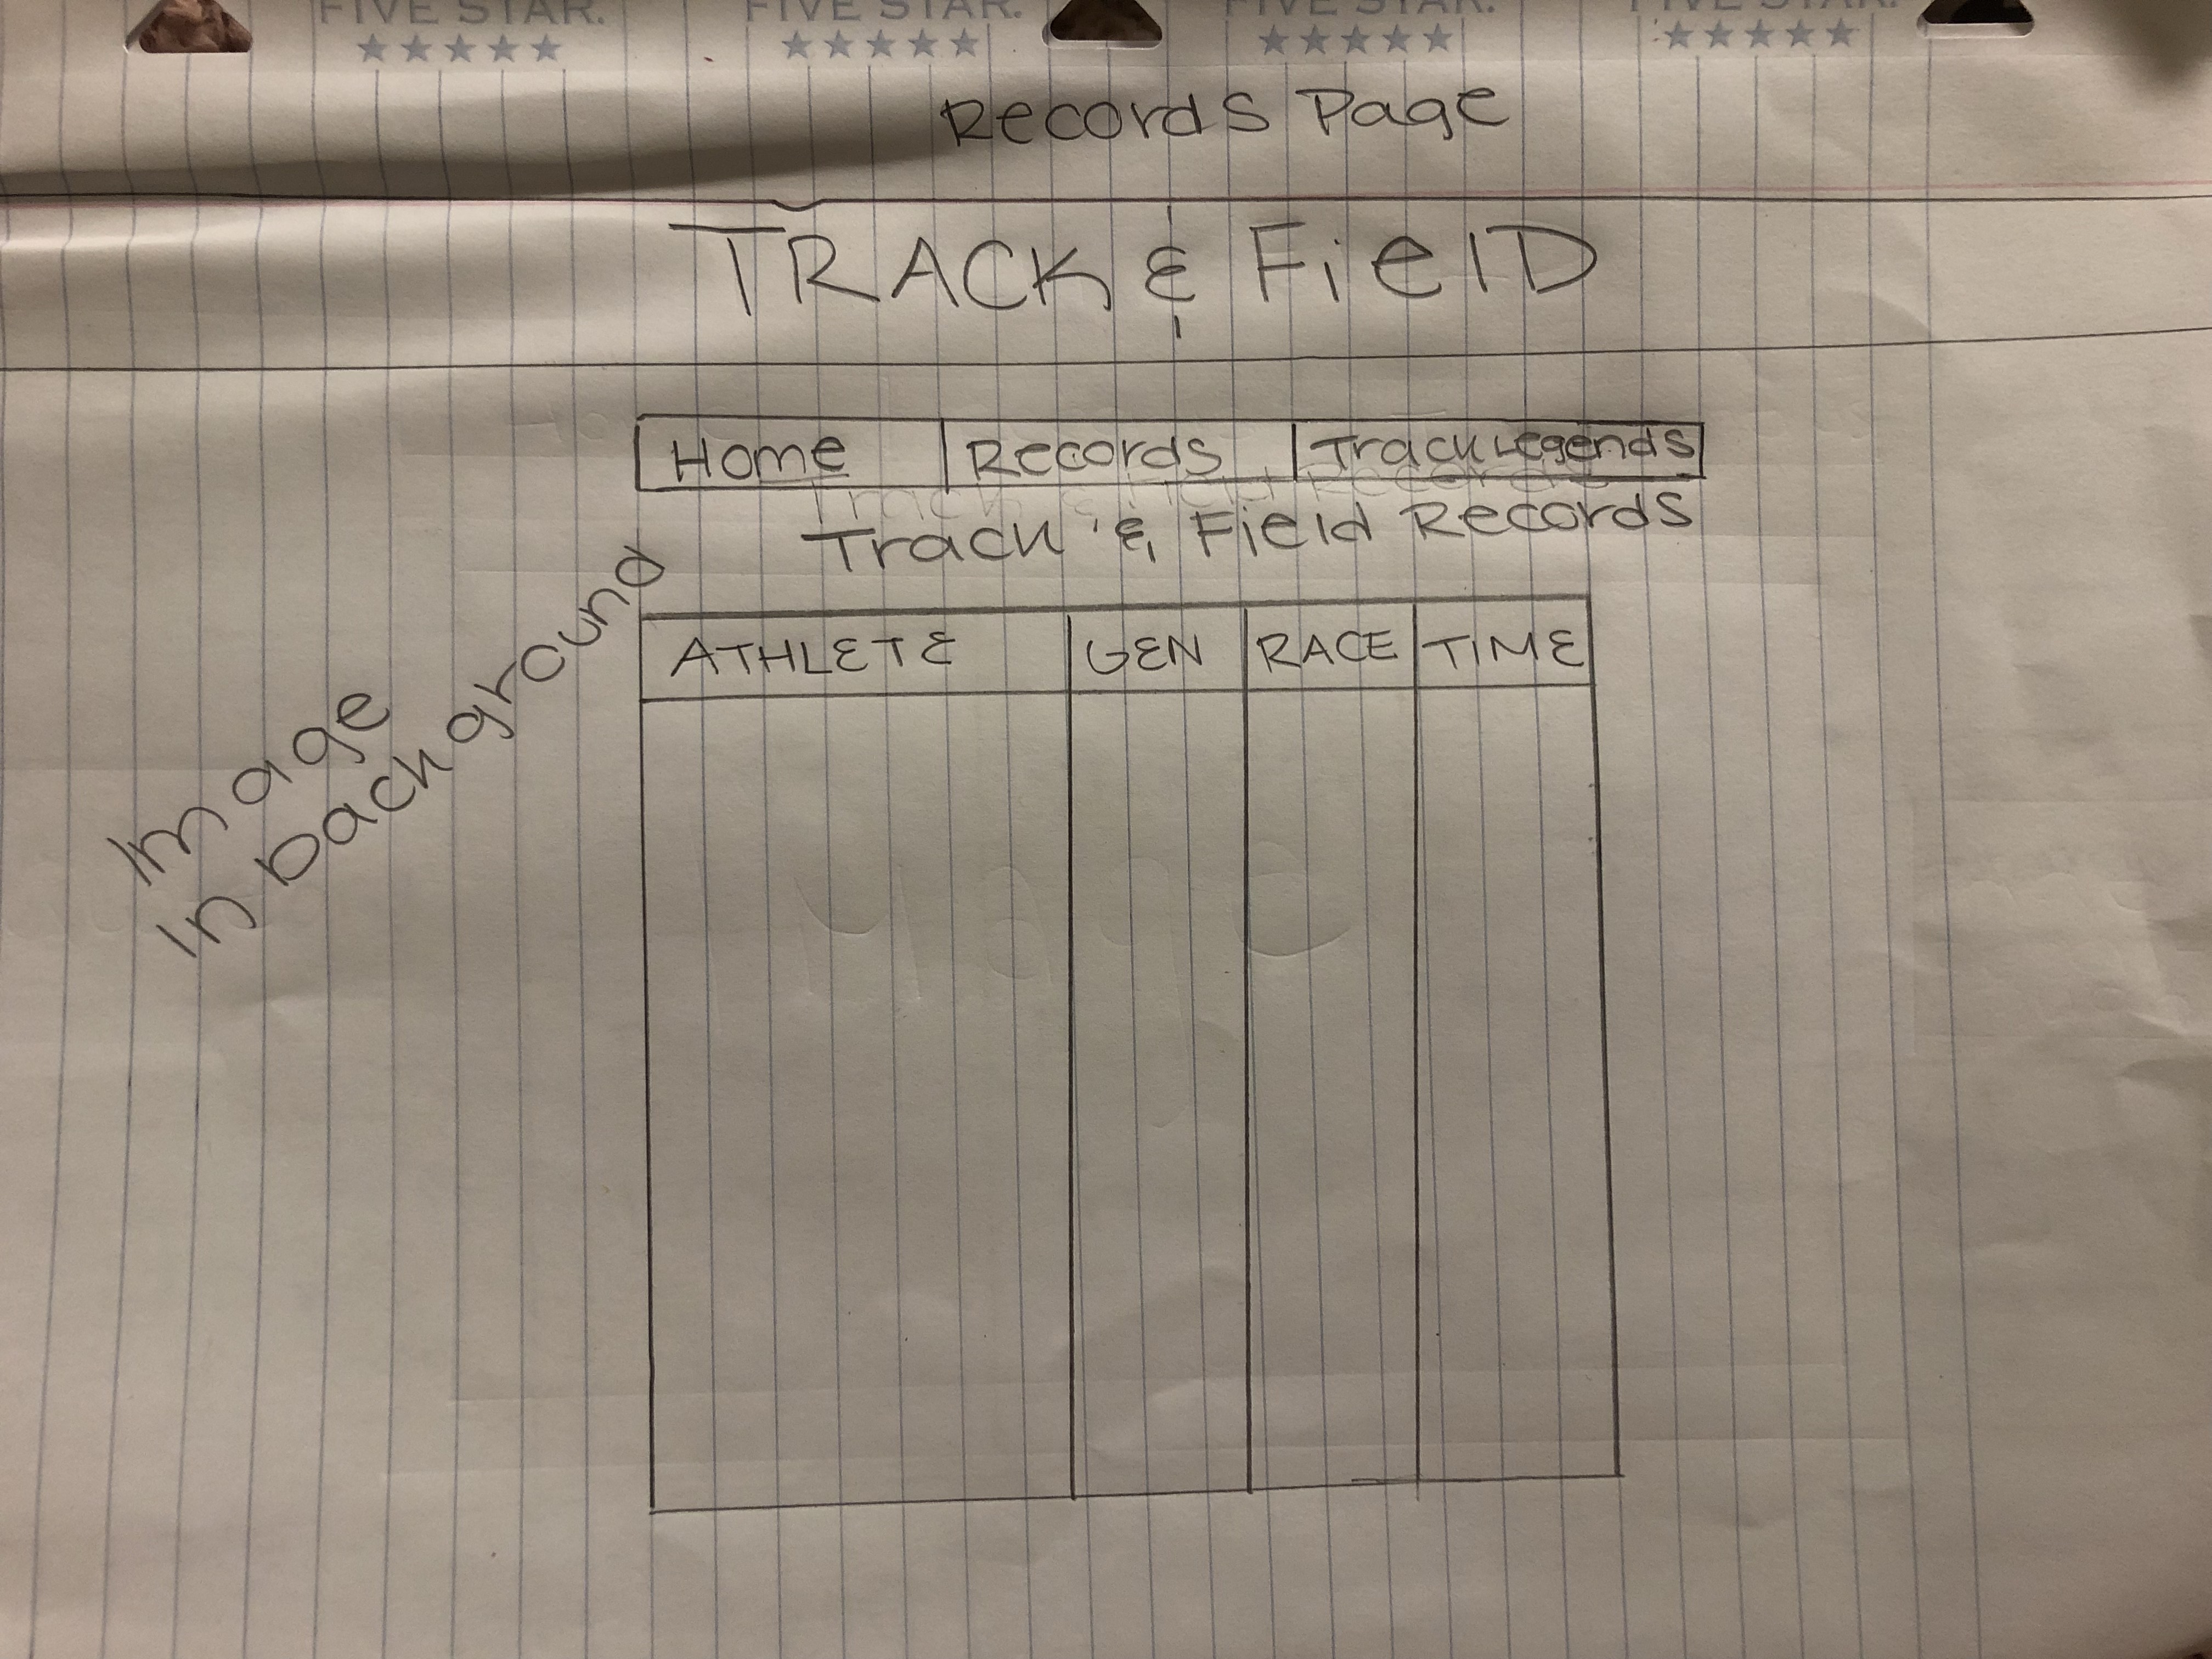 FIVE STAR. FIVE STAR. FIVE STAR. FIVE STAR.
Records Page
TRACK & FielD
Home Records Track Legends
Track & Field Records
Track & Field Records
Image
In background
ATHLETE GEN RACE TIME